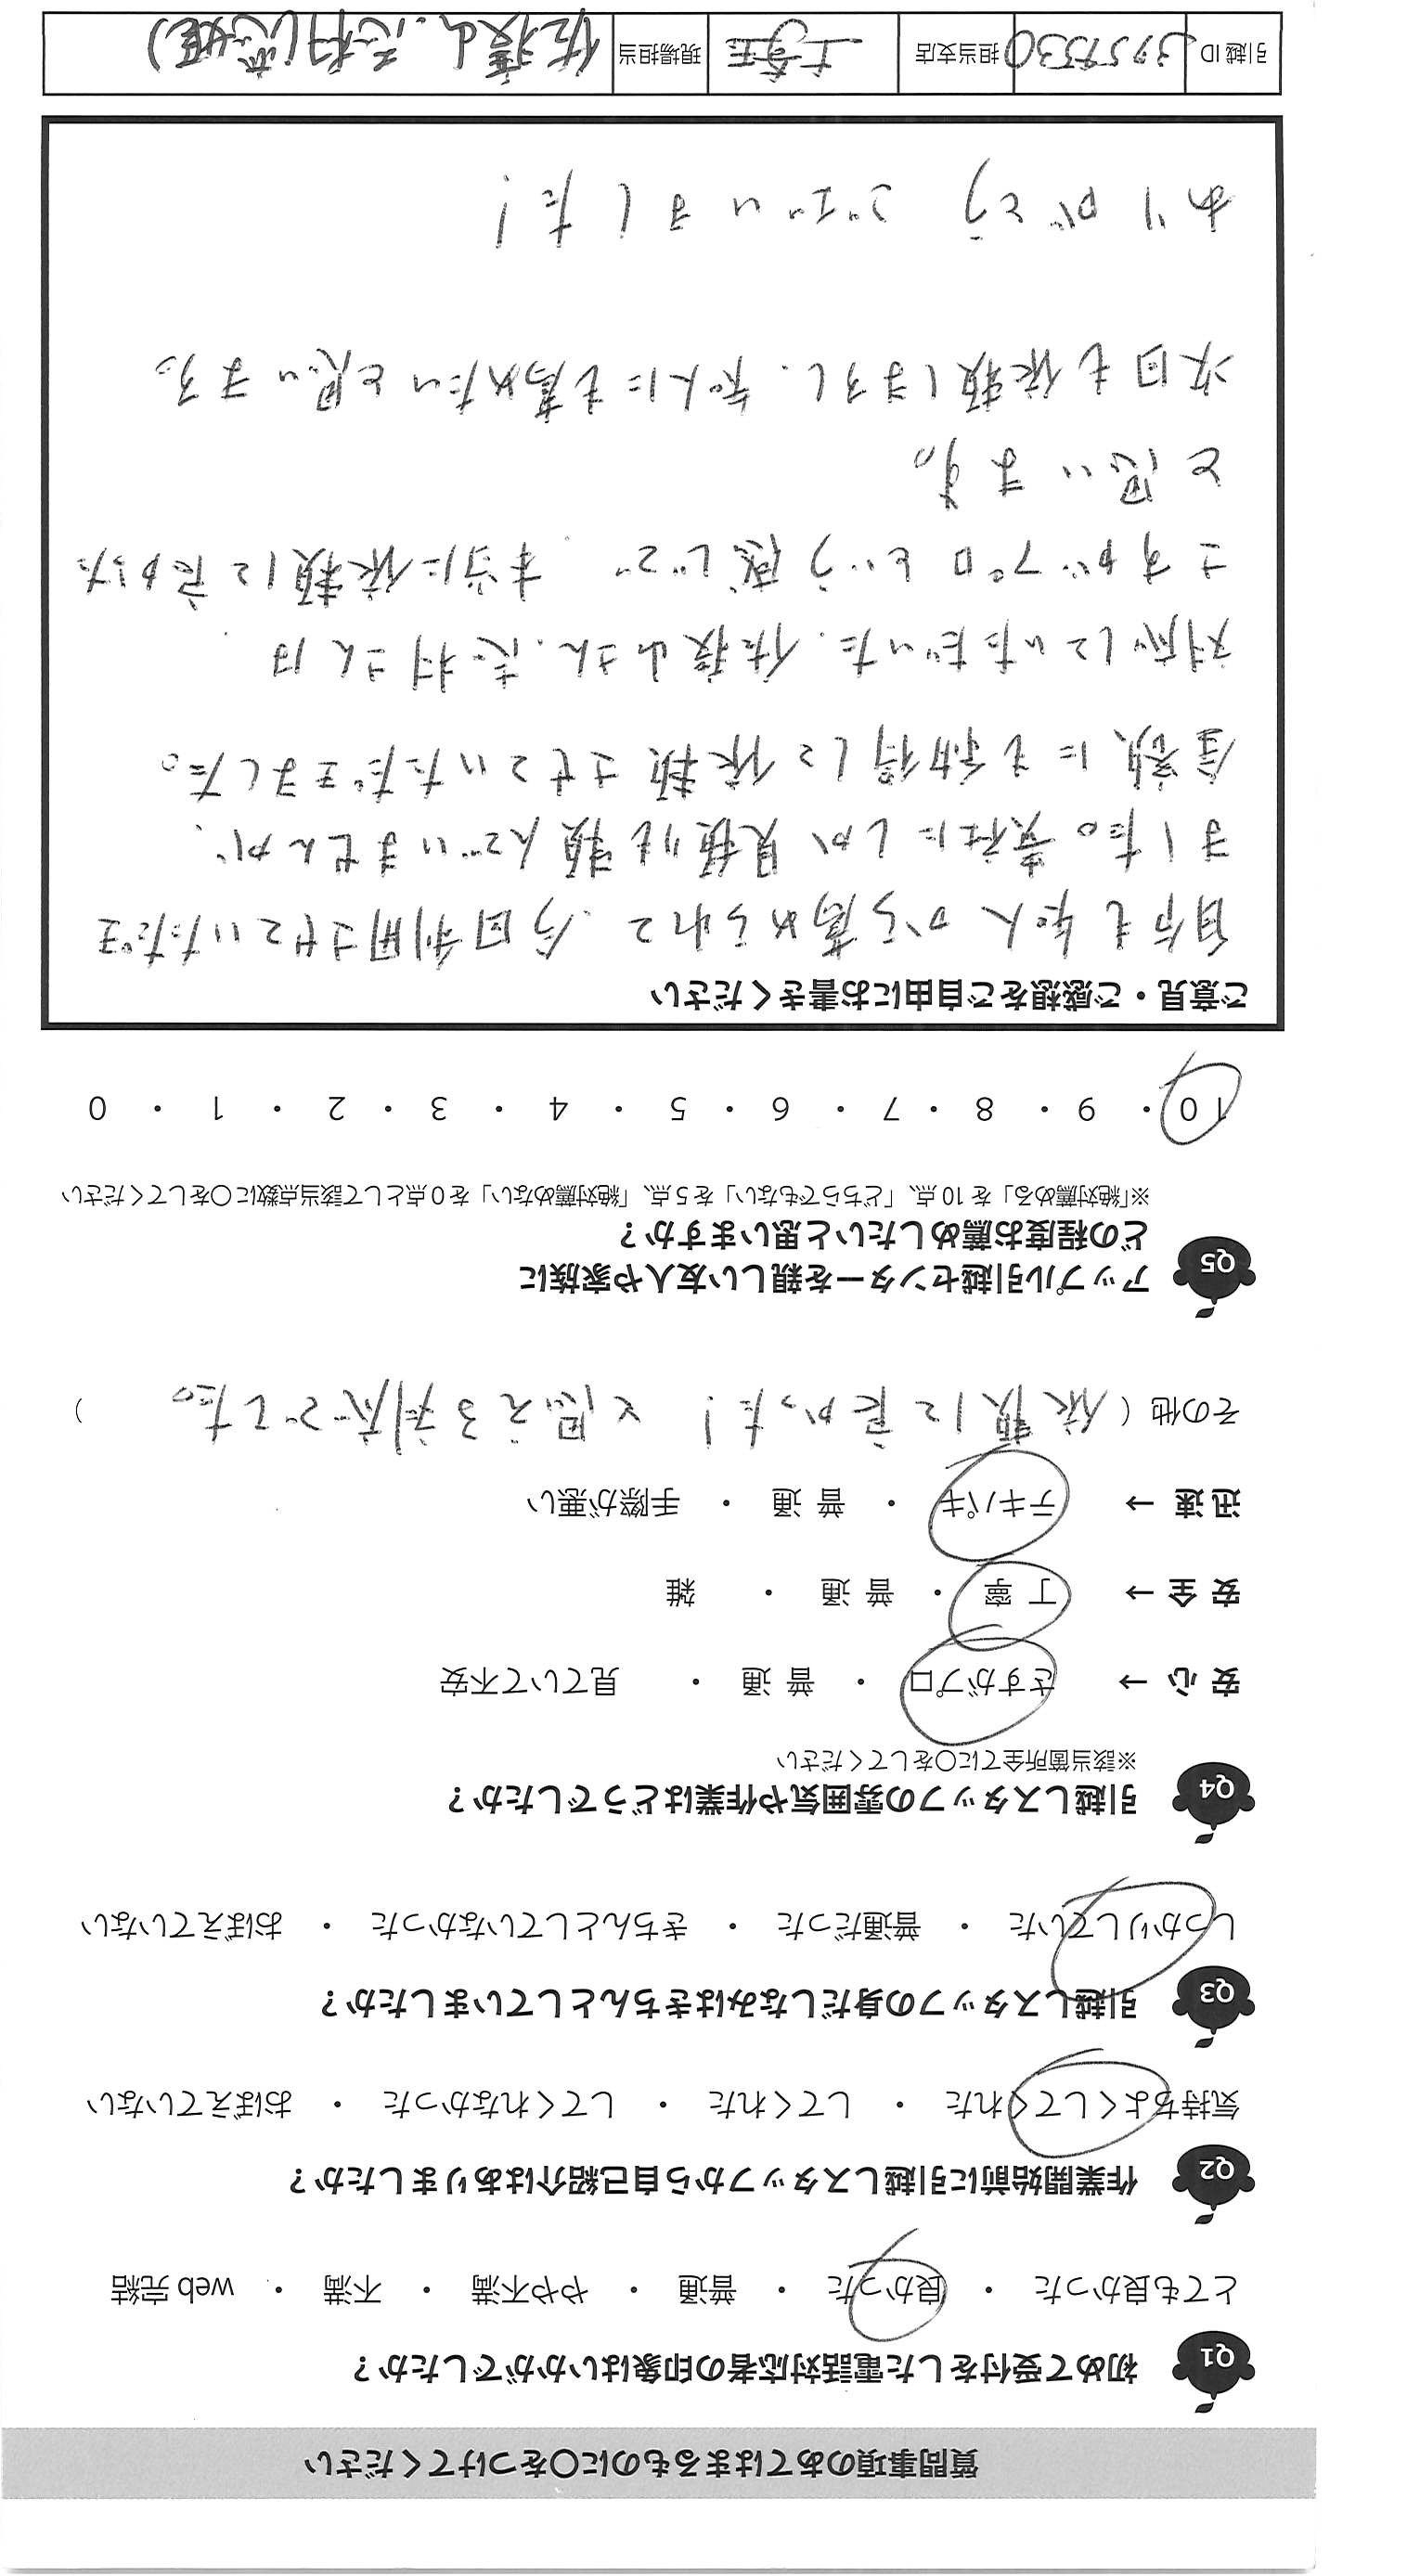 質問事項のあてはまるものに〇をつけてください
Q1 初めて受付をした電話対応者の印象はいかがでしたか？
とても良かった ・ 良かった ・ 普通 ・ やや不満 ・ 不満 ・ web 完結
Q2 作業開始前に引越しスタッフから自己紹介はありましたか？
気持ちよくしてくれた ・ してくれた ・ してくれなかった ・ おぼえていない
Q3 引越しスタッフの身だしなみはきちんとしていましたか？
しっかりしていた ・ 普通だった ・ きちんとしていなかった ・ おぼえていない
Q4 引越しスタッフの雰囲気や作業はどうでしたか？
※該当箇所全てに〇をしてください
安 心 → さすがプロ ・ 普 通 ・ 見ていて不安
安 全 → 丁 寧 ・ 普 通 ・ 雑
迅 速 → テキパキ ・ 普 通 ・ 手際が悪い
その他 ( 依頼して良かった! と思える対応でした。 )
Q5 アップル引越センターを親しい友人や家族に
どの程度お薦めしたいと思いますか？
※「絶対薦める」を 10 点、「どちらでもない」を 5 点、「絶対薦めない」を 0 点として該当点数に〇をしてください
10 ・ 9 ・ 8 ・ 7 ・ 6 ・ 5 ・ 4 ・ 3 ・ 2 ・ 1 ・ 0
ご意見・ご感想をご自由にお書きください
自分も知人から薦められて、今回利用させていただき
ました。貴社にしか見積りも頼んでいませんが、
金額にも納得して依頼させていただきました。
対応していただいた、佐渡山さん、志村さんは
さすがプロという感じで 本当に依頼して良かった
と思います。
次回も依頼しますし、知人にも薦めたいと思いまる。
ありがとう ございました!
引越 ID 担当支店 埼玉 現場担当 佐渡山、志村